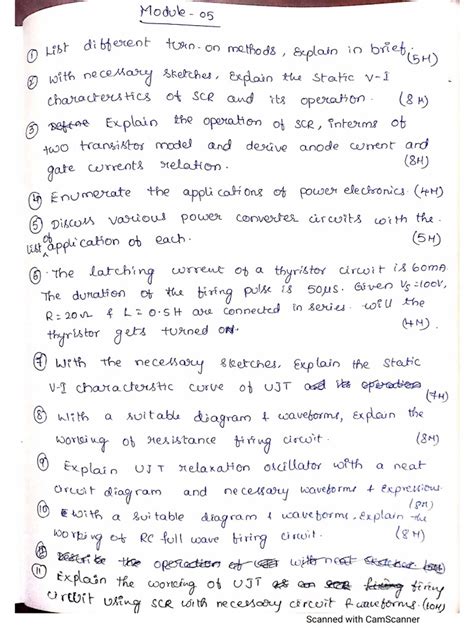 Module - 05
① List different turn-on methods, Explain in brief. (5M)
② With necessary sketches, Explain the static V-I
characterstics of SCR and its operation. (8M)
③ Define Explain the operation of SCR, interms of
two transistor model and derive anode current and
gate currents relation. (8M)
④ Enumerate the applications of power electronics. (4M)
⑤ Discuss various power converter circuits with the
list of application of each. (5M)
⑥ The latching current of a thyristor circuit is 60mA
The duration of the firing pulse is 50µs. Given Vs=100V,
R=20Ω & L=0.5H are connected in series. will the
thyristor gets turned on. (4M)
⑦ With the necessary sketches, Explain the static
V-I characterstic curve of UJT and its operation (7M)
⑧ With a suitable diagram & waveforms, Explain the
working of resistance firing circuit. (8M)
⑨ Explain UJT relaxation oscillator with a neat
circuit diagram and necessary waveforms & Expressions.
(8M)
⑩ With a suitable diagram & waveforms, Explain the
working of RC full wave firing circuit. (8M)
Describe the operation of with neat
11 Explain the working of UJT firing firing
circuit using SCR with necessary circuit & waveforms. (10M)
Scanned with CamScanner